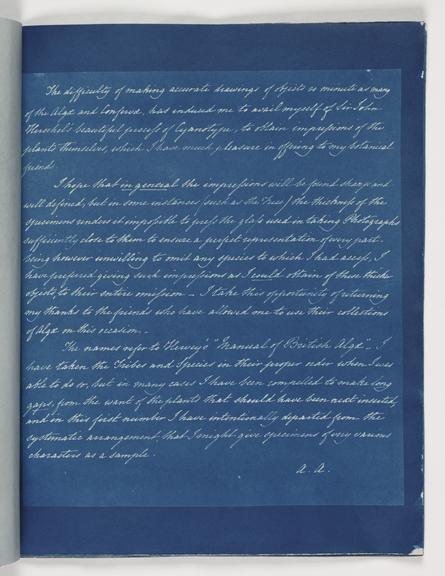 The difficulty of making accurate drawings of objects so minute as many
of the Algæ and Confervæ, has induced me to avail myself of Sir John
Herschel's beautiful process of Cyanotype, to obtain impressions of the
plants themselves, which I have much pleasure in offering to my botanical
friends.
I hope that in general the impressions will be found sharp and
well defined, but in some instances (such as the Fuci) the thickness of the
specimens renders it impossible to press the glass used in taking Photographs
sufficiently close to them to ensure a perfect representation of every part.
Being however unwilling to omit any species to which I had access, I
have preferred giving such impressions as I could obtain of these thick
objects, to their entire omission — I take this opportunity of returning
my thanks to the friends who have allowed me to use their collections
of Algæ on this occasion. —
The names refer to Harvey's "Manual of British Algæ". I
have taken the Tribes and Species in their proper order when I was
able to do so, but in many cases I have been compelled to make long
gaps, from the want of the plants that should have been next inserted,
and in this first number I have intentionally departed from the
systematic arrangement, that I might give specimens of very various
characters as a sample.
A. A.